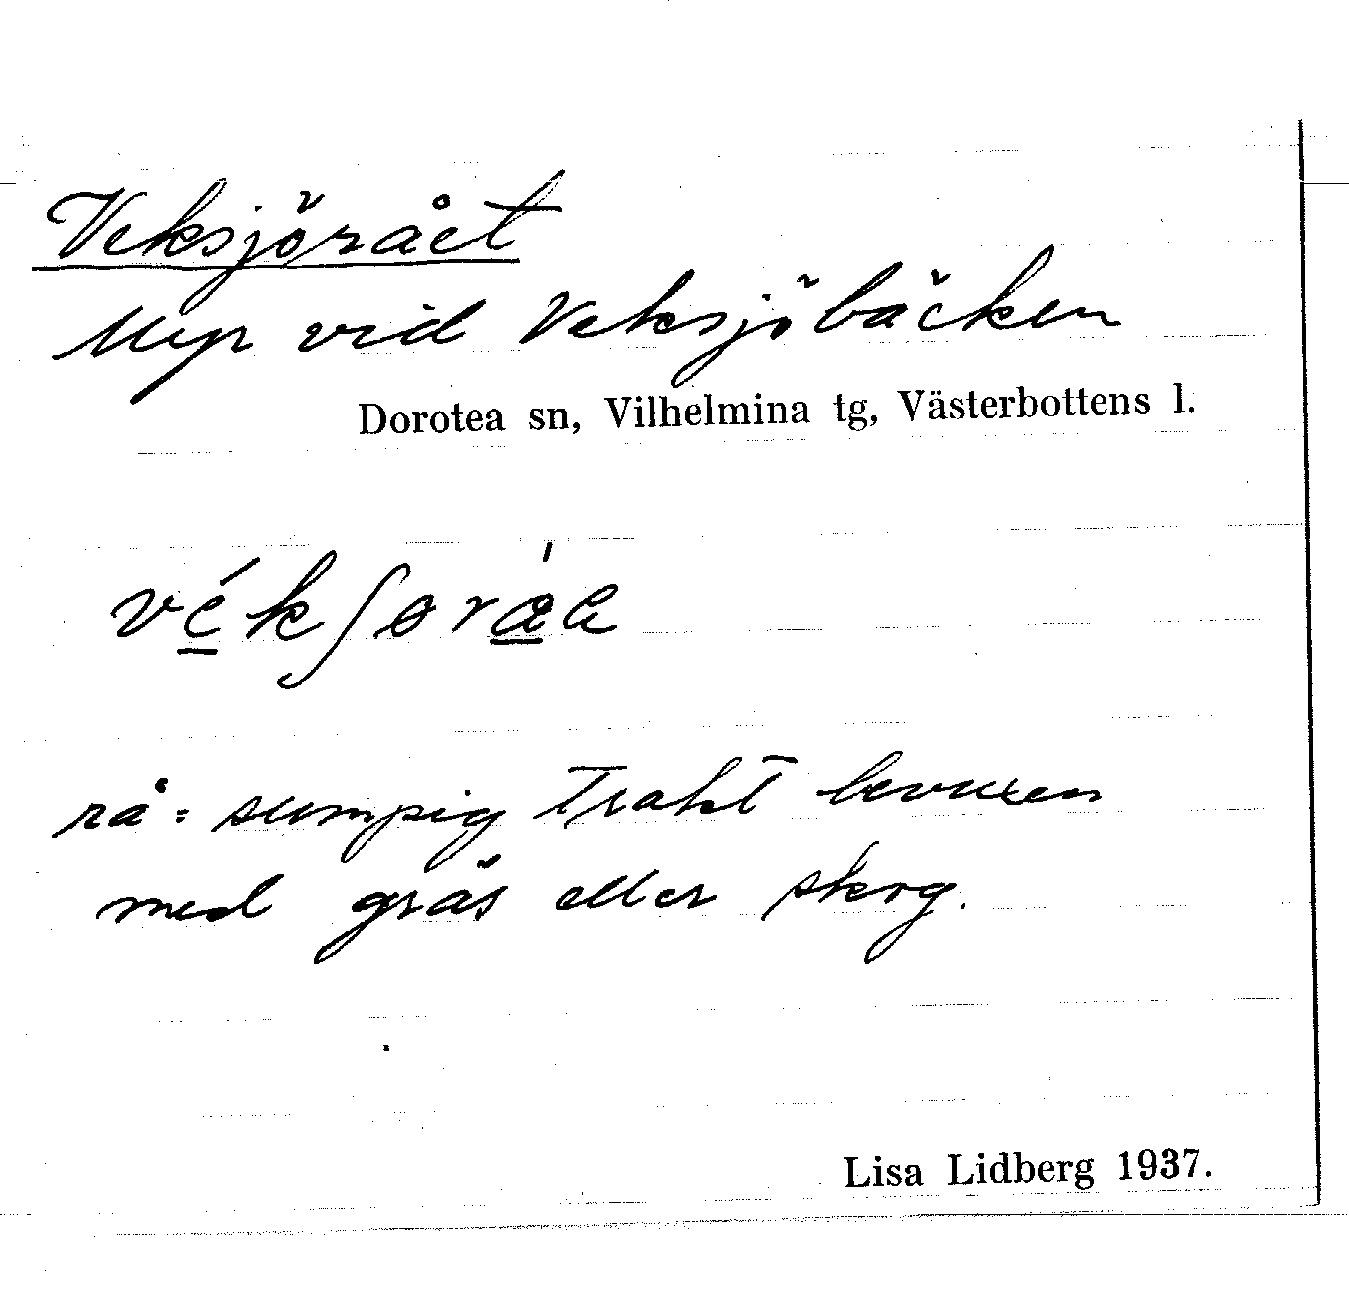 Veksjörået
Myr vid Veksjöbäcken
Dorotea sn, Vilhelmina tg, Västerbottens l.
rå = sumpig trakt bevuxen
med gräs eller skog.
Lisa Lidberg 1937.